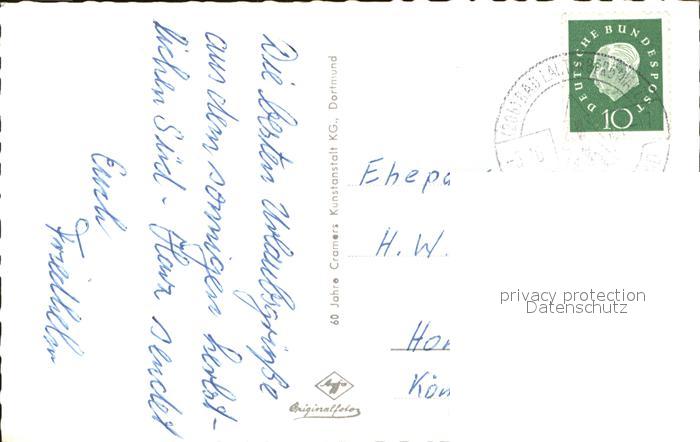 Die besten Urlaubsgrüße
aus dem sonnigen herbst-
lichen Süd-Harz sendet
Euch
Friedhelm
60 Jahre Cramers Kunstanstalt KG., Dortmund
Agfa
Originalfoto
DEUTSCHE BUNDESPOST
10
H.W.
privacy protection
Datenschutz